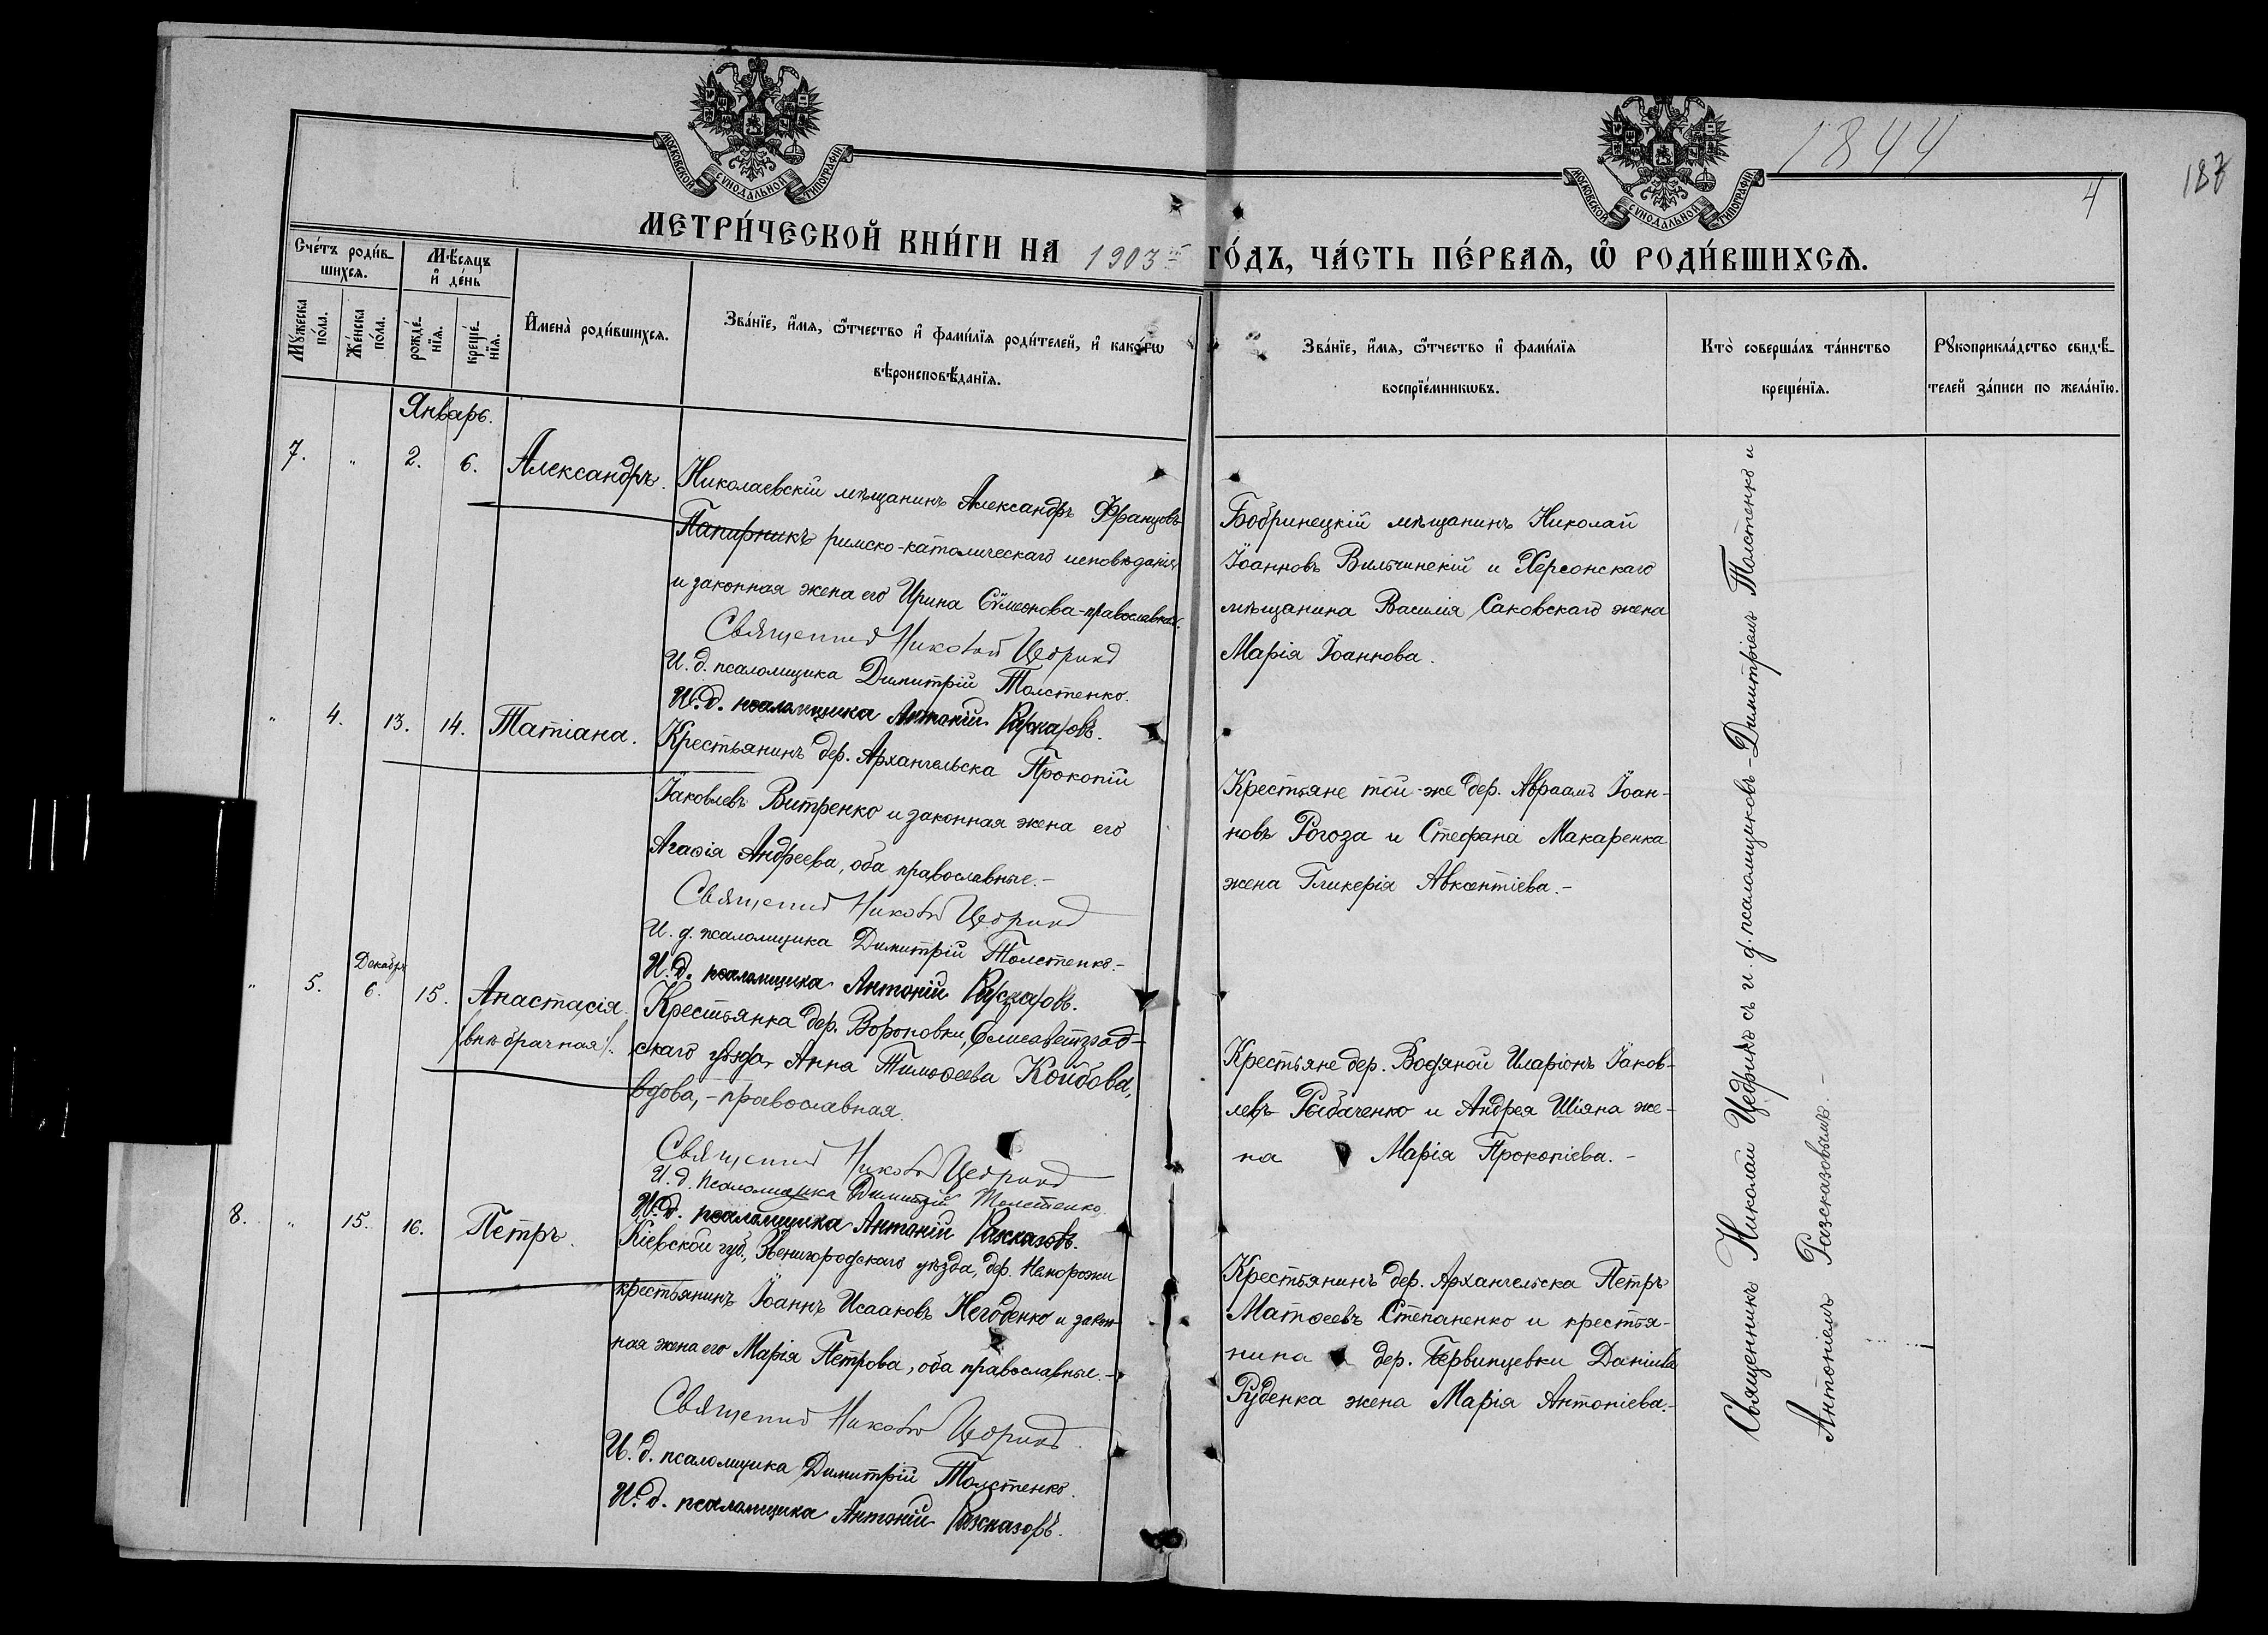 МОСКОВСКОЙ СѴНОДАЛЬНОЙ ТИПОГРАФІИ
МОСКОВСКОЙ СѴНОДАЛЬНОЙ ТИПОГРАФІИ
1844
4
187
МЕТРИ́ЧЕСКОЙ КНИ́ГИ НА 1903й ГО́ДЪ, ЧА́СТЬ ПЕ́РВАѦ, Ѡ҆ РОДИ́ВШИХСѦ.
Сче́тъ роди́в-
шихсѧ.
Мꙋ́жеска по́ла.
Же́нска по́ла.
Мѣ́сѧцъ
и҆ де́нь
рожде́-
нїѧ.
креще́-
нїѧ.
И҆мена̀ роди́вшихсѧ.
Зва́нїе, и҆́мѧ, ѻ҆́тчество и҆ фами́лїѧ роди́телей, и҆ како́гѡ
вѣроисповѣ́данїѧ.
Зва́нїе, и҆́мѧ, ѻ҆́тчество и҆ фами́лїѧ
воспрїе́мникѡвъ.
Кто̀ соверша́лъ та́инство
креще́нїѧ.
Рꙋкоприкла́дство свидѣ́-
телей за́писи по жела́нїю.
Январь.
7. " 2. 6. Александръ.
Николаевскій мѣщанинъ Александръ Францовъ
Папирникъ римско-католическаго исповѣданія
и законная жена его Ирина Сѵмеонова-православная.
Священникъ Николай Цедрикъ
И. д. псаломщика Димитрій Толстенко.
И. д. псаломщика Антоній Разсказовъ.
Бобринецкій мѣщанинъ Николай
Іоанновъ Вильчинскій и Херсонскаго
мѣщанина Василія Саковскаго жена
Марія Іоаннова.
" 4. 13. 14. Татіана.
Крестьянинъ дер. Архангельска Прокопій
Іаковлевъ Витренко и законная жена его
Агаѳія Андреева, оба православные.-
Священникъ Николай Цедрикъ
И. д. псаломщика Димитрій Толстенко.-
И. д. псаломщика Антоній Разсказовъ.
Крестьяне той-же дер. Авраамъ Іоан-
новъ Рогоза и Стефана Макаренка
жена Гликерія Авксентіева.-
Декабря
" 5. 6. 15. Анастасія
(внѣбрачная).
Крестьянка дер. Вороновки, Елисаветград-
скаго уѣзда, Анна Тимоѳеева Койбова,
вдова,-православная.
Священникъ Николай Цедрикъ
И. д. псаломщика Димитрій Толстенко.
И. д. псаломщика Антоній Разсказовъ.
Крестьяне дер. Водяной Иларіонъ Іаков-
левъ Рыбаченко и Андрея Шіяна же-
на Марія Прокопіева.-
8. " 15. 16. Петръ.
Кіевской губ., Звенигородскаго уѣзда, дер. Неморожи
крестьянинъ Іоаннъ Исааковъ Негоденко и закон-
ная жена его Марія Петрова, оба православные.-
Священникъ Николай Цедрикъ
И. д. псаломщика Димитрій Толстенко.
И. д. псаломщика Антоній Разсказовъ.
Крестьянинъ дер. Архангельска Петръ
Матѳеевъ Степаненко и крестья-
нина дер. Первинцевки Даніила
Руденка жена Марія Антоніева.-
Священникъ Николай Цедрикъ съ и. д. псаломщиковъ-Димитріемъ Толстенко и
Антоніемъ Разсказовымъ.-